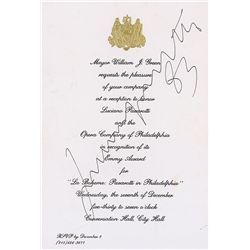 Mayor William J. Green
requests the pleasure
of your company
at a reception to honor
Luciano Pavarotti
and the
Opera Company of Philadelphia
in recognition of its
Emmy Award
for
"La Boheme: Pavarotti in Philadelphia"
Wednesday, the seventh of December
five-thirty to seven o'clock
Conversation Hall, City Hall
RSVP by December 2